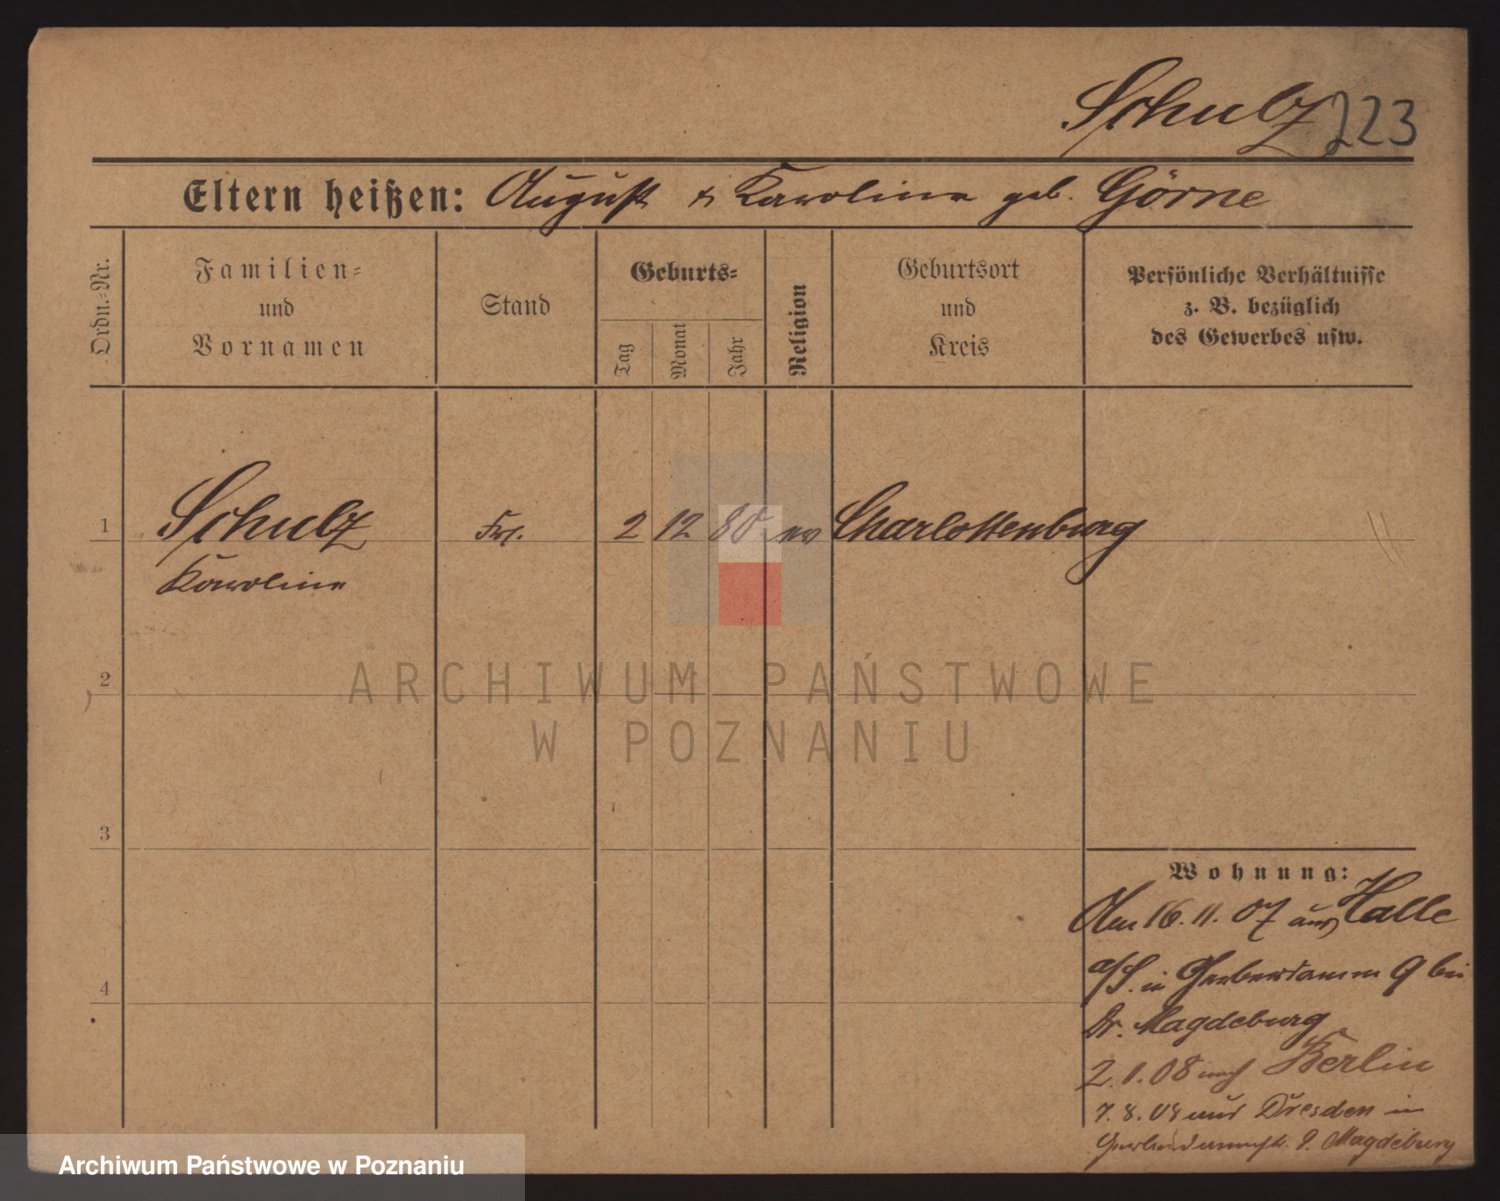 Schulz 223
Eltern heißen: August & Karoline geb. Görne
Ordn.-Nr.
Familien-
und
Vornamen
Stand
Geburts-
Tag
Monat
Jahr
Religion
Geburtsort
und
Kreis
Persönliche Verhältnisse
z. B. bezüglich
des Gewerbes usw.
1 Schulz Frl. 2 12 80 ev Charlottenburg
Karoline
2
ARCHIWUM PAŃSTWOWE
W POZNANIU
3
4
Wohnung:
Am 16. 11. 07 aus Halle
a/S. in Gerberdamm 9 bei
Dr. Magdeburg
2. 1. 08 nach Berlin
7. 8. 08 aus Dresden in
9. Magdeburg
Archiwum Państwowe w Poznaniu